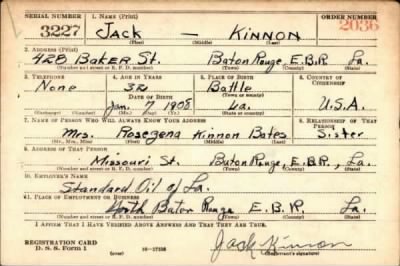 SERIAL NUMBER 1. NAME (Print) ORDER NUMBER
3227 Jack — Kinnon 2036
(First) (Middle) (Last)
2. ADDRESS (Print)
428 Baker St. Baton Rouge, E.B.R. La.
(Number and street or R. F. D. number) (Town) (County) (State)
3. TELEPHONE 4. AGE IN YEARS 5. PLACE OF BIRTH 6. COUNTRY OF CITIZENSHIP
None 32 Battle
DATE OF BIRTH (Town or county)
Jan. 7 1908 La. U.S.A.
(Exchange) (Number) (Mo.) (Day) (Yr.) (State or country)
7. NAME OF PERSON WHO WILL ALWAYS KNOW YOUR ADDRESS 8. RELATIONSHIP OF THAT PERSON
Mrs. Rosezena Kinnon Bates Sister
(Mr., Mrs., Miss) (First) (Middle) (Last)
9. ADDRESS OF THAT PERSON
Missouri St. Baton Rouge, E.B.R., La.
(Number and street or R. F. D. number) (Town) (County) (State)
10. EMPLOYER'S NAME
Standard Oil of La.
11. PLACE OF EMPLOYMENT OR BUSINESS
North Baton Rouge E.B.R. La.
(Number and street or R. F. D. number) (Town) (County) (State)
I AFFIRM THAT I HAVE VERIFIED ABOVE ANSWERS AND THAT THEY ARE TRUE.
REGISTRATION CARD Jack Kinnon
D. S. S. Form 1 (over) (Registrant's signature)